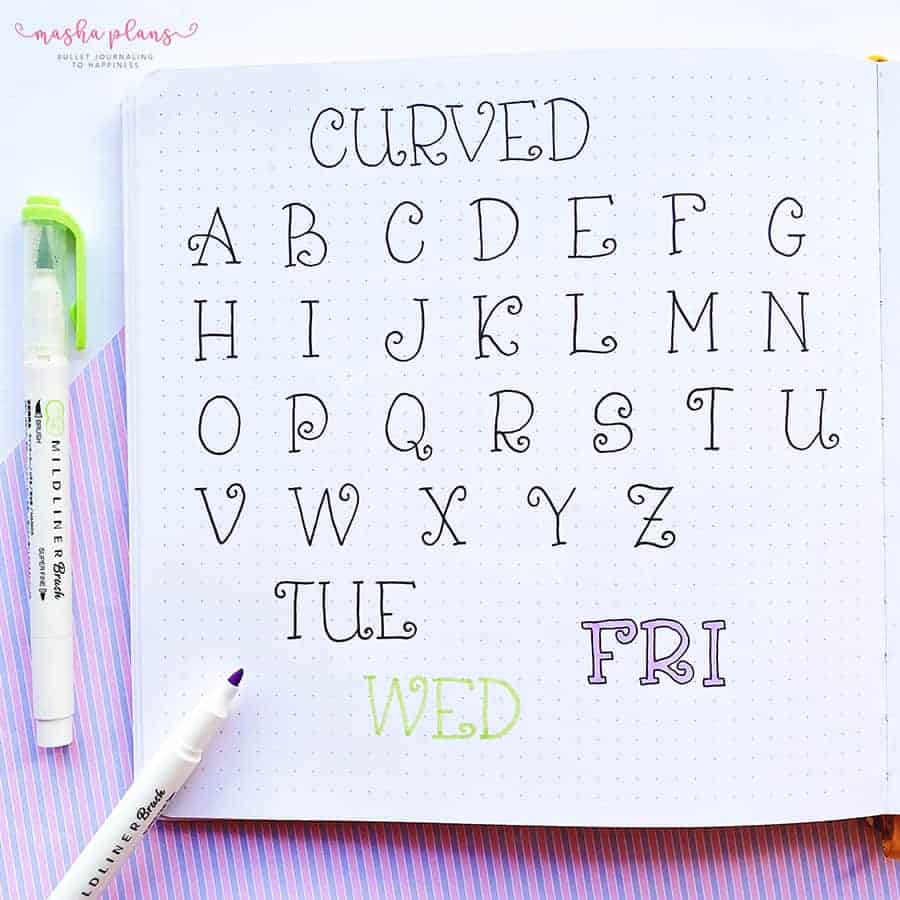 masha plans
BULLET JOURNALING
TO HAPPINESS
CURVED
A B C D E F G
H I J K L M N
O P Q R S T U
V W X Y Z
TUE
FRI
WED
BRUSH
MILDLINER Brush
SUPER FINE
LDLINER Brush